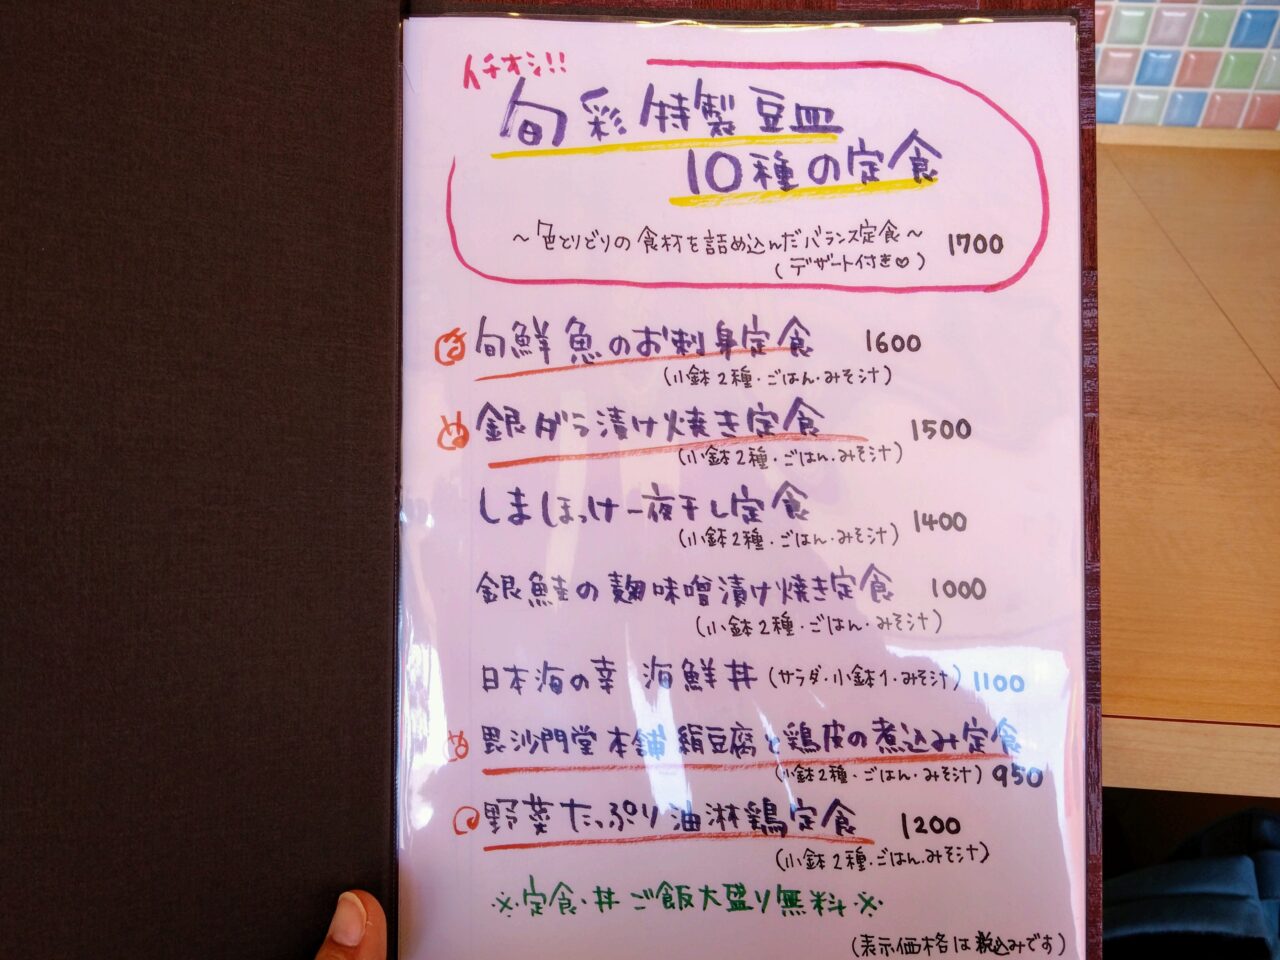 イチオシ!!
旬彩特製豆皿
10種の定食
～色とりどりの食材を詰め込んだバランス定食～ 1700
(デザート付き♡)
旬鮮魚のお刺身定食 1600
(小鉢2種・ごはん・みそ汁)
銀ダラ漬け焼き定食 1500
(小鉢2種・ごはん・みそ汁)
しまほっけ一夜干し定食 1400
(小鉢2種・ごはん・みそ汁)
銀鮭の麹味噌漬け焼き定食 1000
(小鉢2種・ごはん・みそ汁)
日本海の幸 海鮮丼 (サラダ・小鉢1・みそ汁) 1100
毘沙門堂本舗絹豆腐と鶏皮の煮込み定食
(小鉢2種・ごはん・みそ汁) 950
野菜たっぷり油淋鶏定食 1200
(小鉢2種・ごはん・みそ汁)
※定食・丼 ご飯大盛り無料※
(表示価格は税込みです)